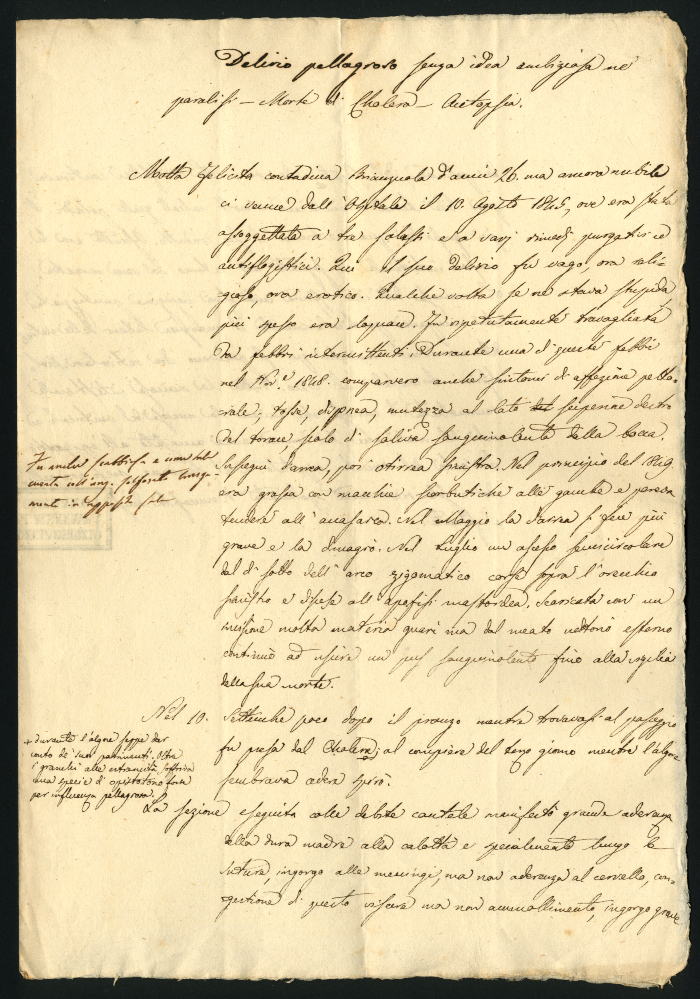 Delirio pellagroso senza idea ambiziosa nè
paralisi – Morte di Cholera – Autopsia.
Motta Felicita contadina Brianzuola d'anni 26. ma ancora nubile
ci venne dall'Ospitale il 10. Agosto 1848, ove era stata
assoggettata a tre salassi e a varj rimedj purgativi ed
antiflogistici. Qui il suo delirio fu vago, ora reli-
gioso, ora erotico. Qualche volta se ne stava stupida
più spesso era loquace. Fu ripetutamente travagliata
da febbri intermittenti. Durante una di queste febbri
nel Nov.e 1848. comparvero anche sintomi di affezione petto-
rale; tossa, dispnea, mutezza al lato superiore destro
del torace scolo di saliva sanguinolenta dalla bocca.
Susseguì diarrea, poi otirrea sinistra. Nel principio del 1849
era grassa con macchie scorbutiche alle gambe e pareva
tendere all'anasarca. Nel Maggio la diarrea si fece più
grave e la dimagrò. Nel Luglio un ascesso semicircolare
dal di sotto dell'arco zigomatico corse sopra l'orecchio
sinistro e discese all'apofisi mastoidea. Scaricata con un
incisione molta materia guarì ma dal meato uditorio esterno
continuò ad uscire un pus sanguinolento fino alla vigilia
della sua morte.
Fu anche scabbiosa e
all'ung. solforato
Nel 10. Settembre poco dopo il pranzo mentre trovavasi al passeggio
fu presa dal Cholera; al compiere del terzo giorno mentre l'algore
sembrava cedere spirò.
+ durante l'algore seppe dar
conto de' suoi patimenti. Oltre
i granchi alle estremità soffriva
una specie di opistotono forse
per influenza pellagrosa.
La sezione eseguita colle debite cautele manifestò grande aderenza
della dura madre alla calotta e specialmente lungo le
suture, ingorgo alle meningi, ma non aderenza al cervello, con-
gestione di questo viscere ma non ammollimento, ingorgo grave